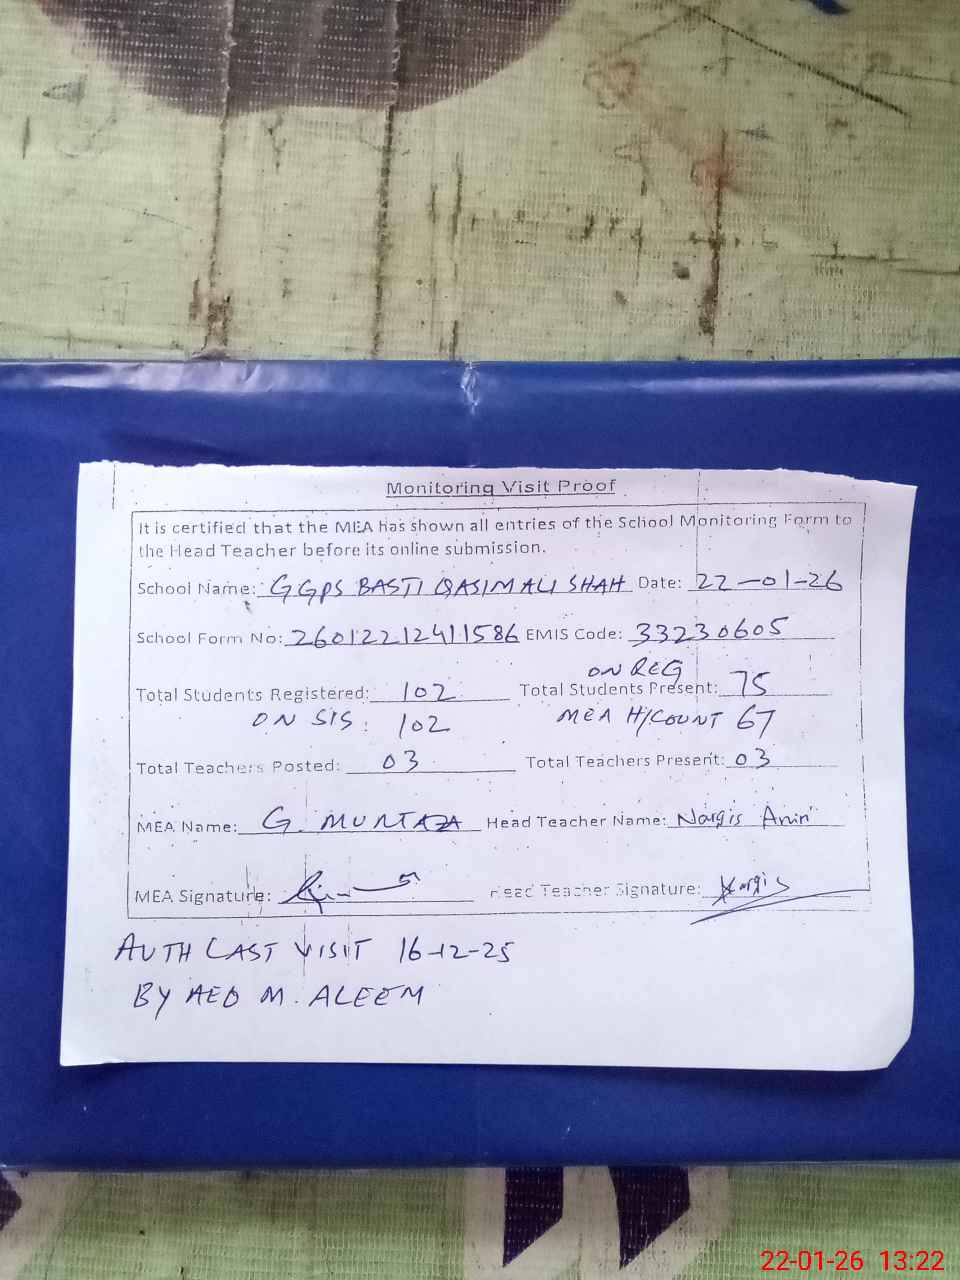 Monitoring Visit Proof
It is certified that the MEA has shown all entries of the School Monitoring Form to
the Head Teacher before its online submission.
School Name: GGPS BASTI QASIM ALI SHAH Date: 22-01-26
School Form No: 260122122411586 EMIS Code: 33230605
ON REG
Total Students Registered: 102 Total Students Present: 75
ON SIS: 102 MEA H/COUNT 67
Total Teachers Posted: 03 Total Teachers Present: 03
MEA Name: G. MURTAZA Head Teacher Name: Nargis Amin
MEA Signature: Head Teacher Signature: Nargis
AUTH LAST VISIT 16-12-25
BY AEO M. ALEEM
22-01-26 13:22